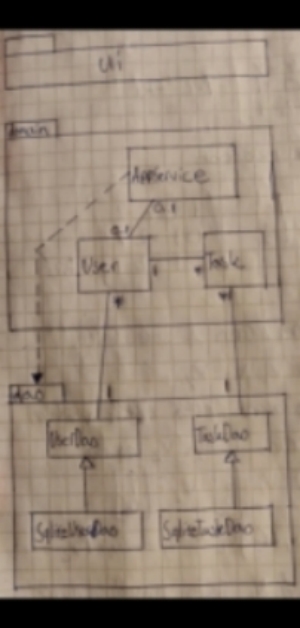 Ui
main
AppService
0..1
0..1
User
1
*
Task
*
*
dao
1
1
UserDao
TaskDao
SqliteUserDao
SqliteTaskDao